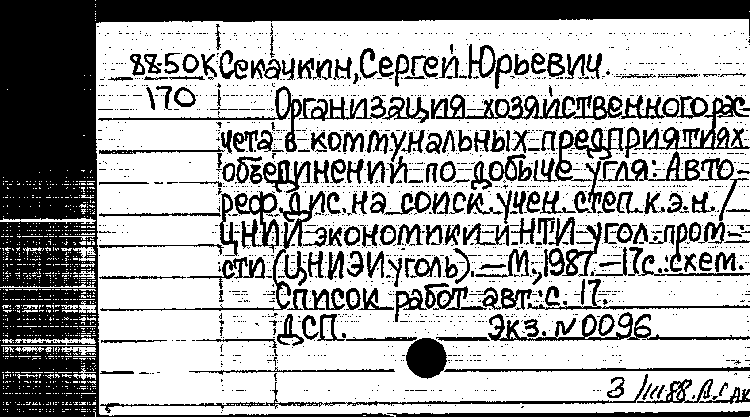 8850К Секачкин, Сергей Юрьевич.
170 Организация хозяйственного рас-
чета в коммунальных предприятиях
объединений по добыче угля: Авто-
реф. дис. на соиск. учен. степ. к.э.н. /
ЦНИИ экономики и НТИ угол. пром-
сти (ЦНИЭИуголь). — М., 1987. — 17с.: схем.
Список работ авт.: с. 17.
ДСП. Экз. №0096.
3/III 88.